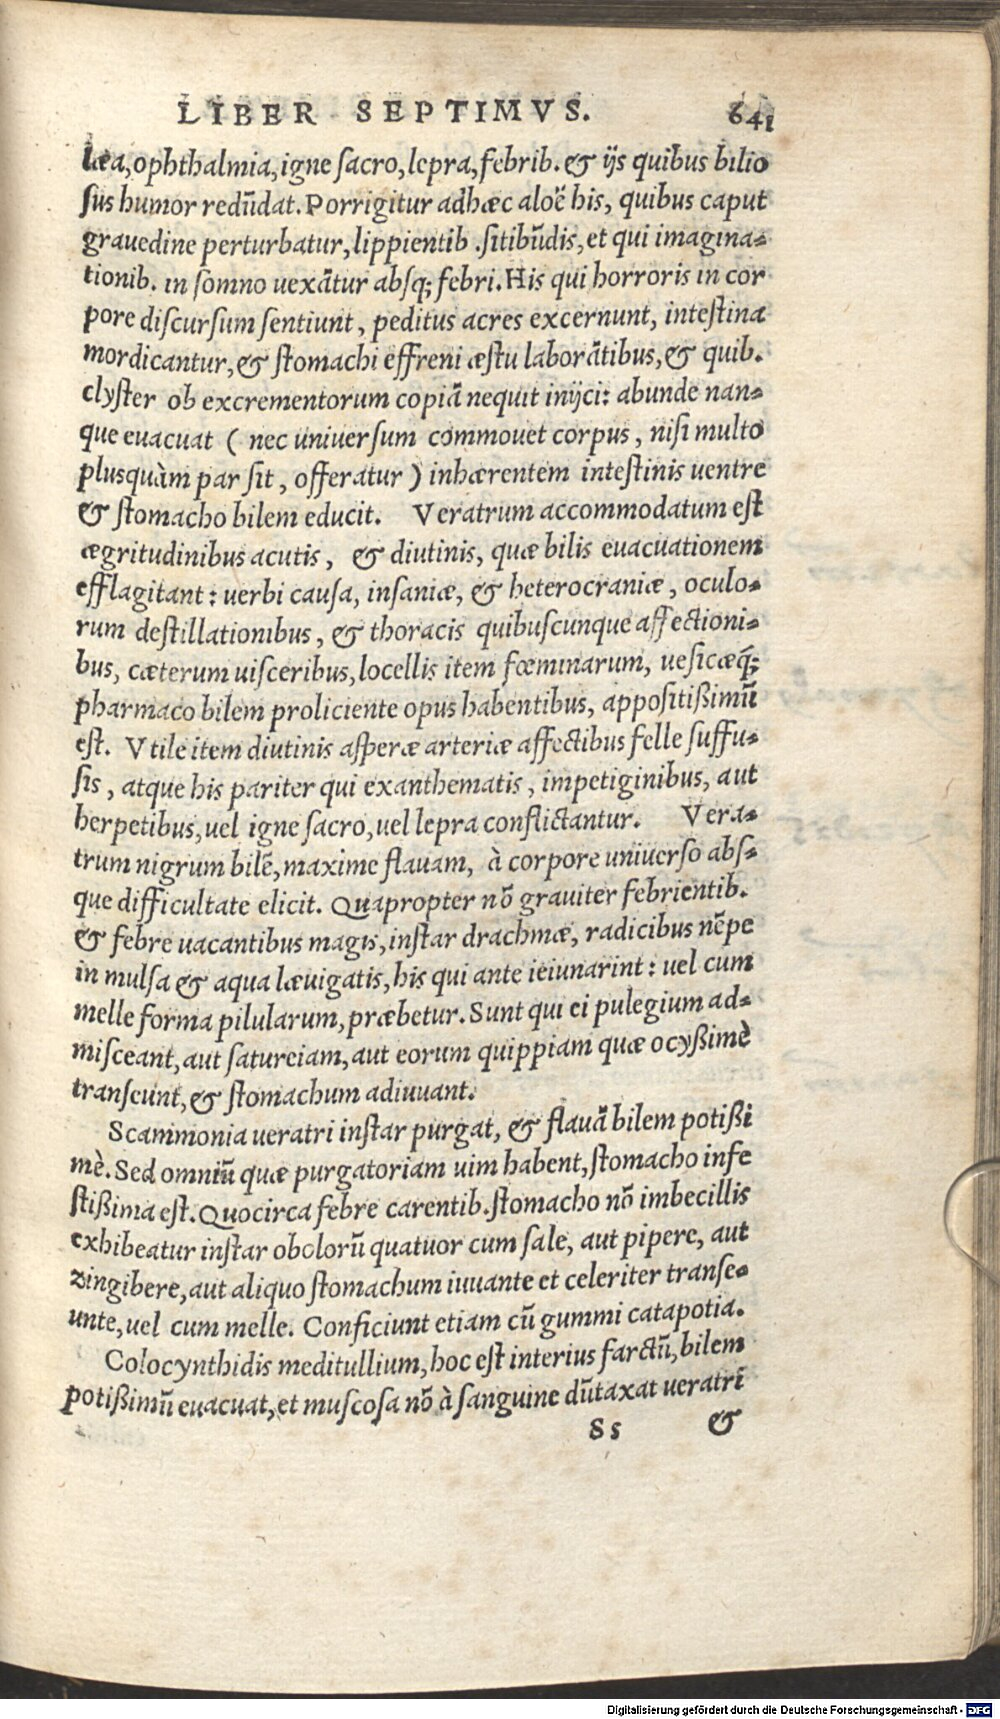 LIBER SEPTIMVS. 641
læa, ophthalmia, igne sacro, lepra, febrib. & ijs quibus bilio
sus humor redūdat. Porrigitur adhæc aloë his, quibus caput
grauedine perturbatur, lippientib. sitibūdis, et qui imagina-
tionib. in somno uexātur absq; febri. His qui horroris in cor
pore discursum sentiunt, peditus acres excernunt, intestina
mordicantur, & stomachi effreni æstu laborātibus, & quib.
clyster ob excrementorum copiā nequit inijci: abunde nan-
que euacuat ( nec uniuersum commouet corpus, nisi multo
plusquàm par sit, offeratur ) inhærentem intestinis uentre
& stomacho bilem educit. Veratrum accommodatum est
ægritudinibus acutis, & diutinis, quæ bilis euacuationem
efflagitant: uerbi causa, insaniæ, & heterocraniæ, oculo-
rum destillationibus, & thoracis quibuscunque affectioni-
bus, cæterum uisceribus, locellis item fœminarum, uesicæq́;
pharmaco bilem proliciente opus habentibus, appositißimū
est. Vtile item diutinis asperæ arteriæ affectibus felle suffu-
sis, atque his pariter qui exanthematis, impetiginibus, aut
herpetibus, uel igne sacro, uel lepra conflictantur. Vera-
trum nigrum bilē, maxime flauam, à corpore uniuerso abs-
que difficultate elicit. Quapropter nō grauiter febrientib.
& febre uacantibus magis, instar drachmæ, radicibus nēpe
in mulsa & aqua læuigatis, his qui ante ieiunarint: uel cum
melle forma pilularum, præbetur. Sunt qui ei pulegium ad-
misceant, aut satureiam, aut eorum quippiam quæ ocyßimè
transeunt, & stomachum adiuuant.
Scammonia ueratri instar purgat, & flauā bilem potißi
mè. Sed omniū quæ purgatoriam uim habent, stomacho infe
stißima est. Quocirca febre carentib. stomacho nō imbecillis
exhibeatur instar obolorū quatuor cum sale, aut pipere, aut
zingibere, aut aliquo stomachum iuuante et celeriter transe-
unte, uel cum melle. Conficiunt etiam cū gummi catapotia.
Colocynthidis meditullium, hoc est interius farctū, bilem
potißimū euacuat, et muscosa nō à sanguine dūtaxat ueratri
Ss &
Digitalisierung gefördert durch die Deutsche Forschungsgemeinschaft - DFG